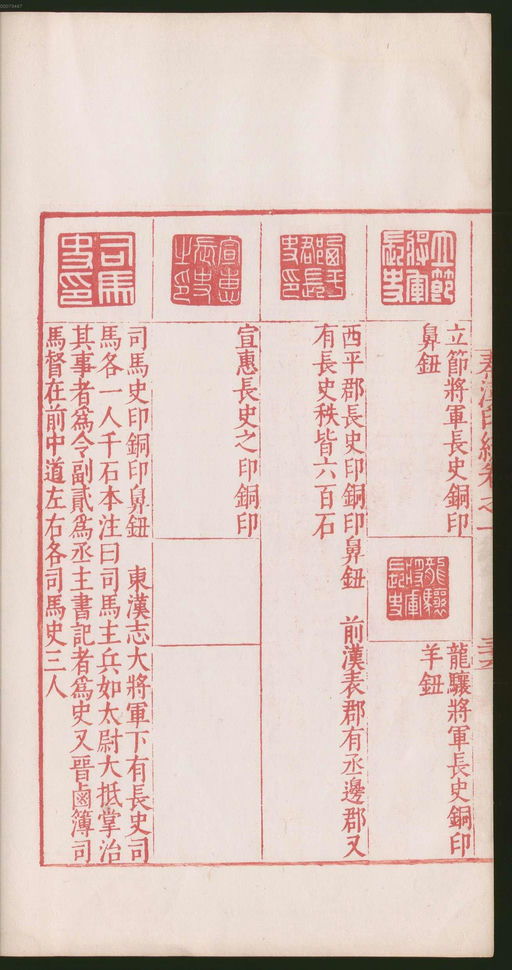 立節將軍長史
立節將軍長史銅印
鼻鈕
龍驤將軍長史
龍驤將軍長史銅印
羊鈕
西平郡長史印
西平郡長史印銅印鼻鈕 前漢表郡有丞邊郡又
有長史秩皆六百石
宣惠長史之印
宣惠長史之印銅印
司馬史印
司馬史印銅印鼻鈕 東漢志大將軍下有長史司
馬各一人千石本注曰司馬主兵如太尉大抵掌治
其事者為令副貳為丞主書記者為史又晉鹵簿司
馬督在前中道左右各司馬史三人
00073487